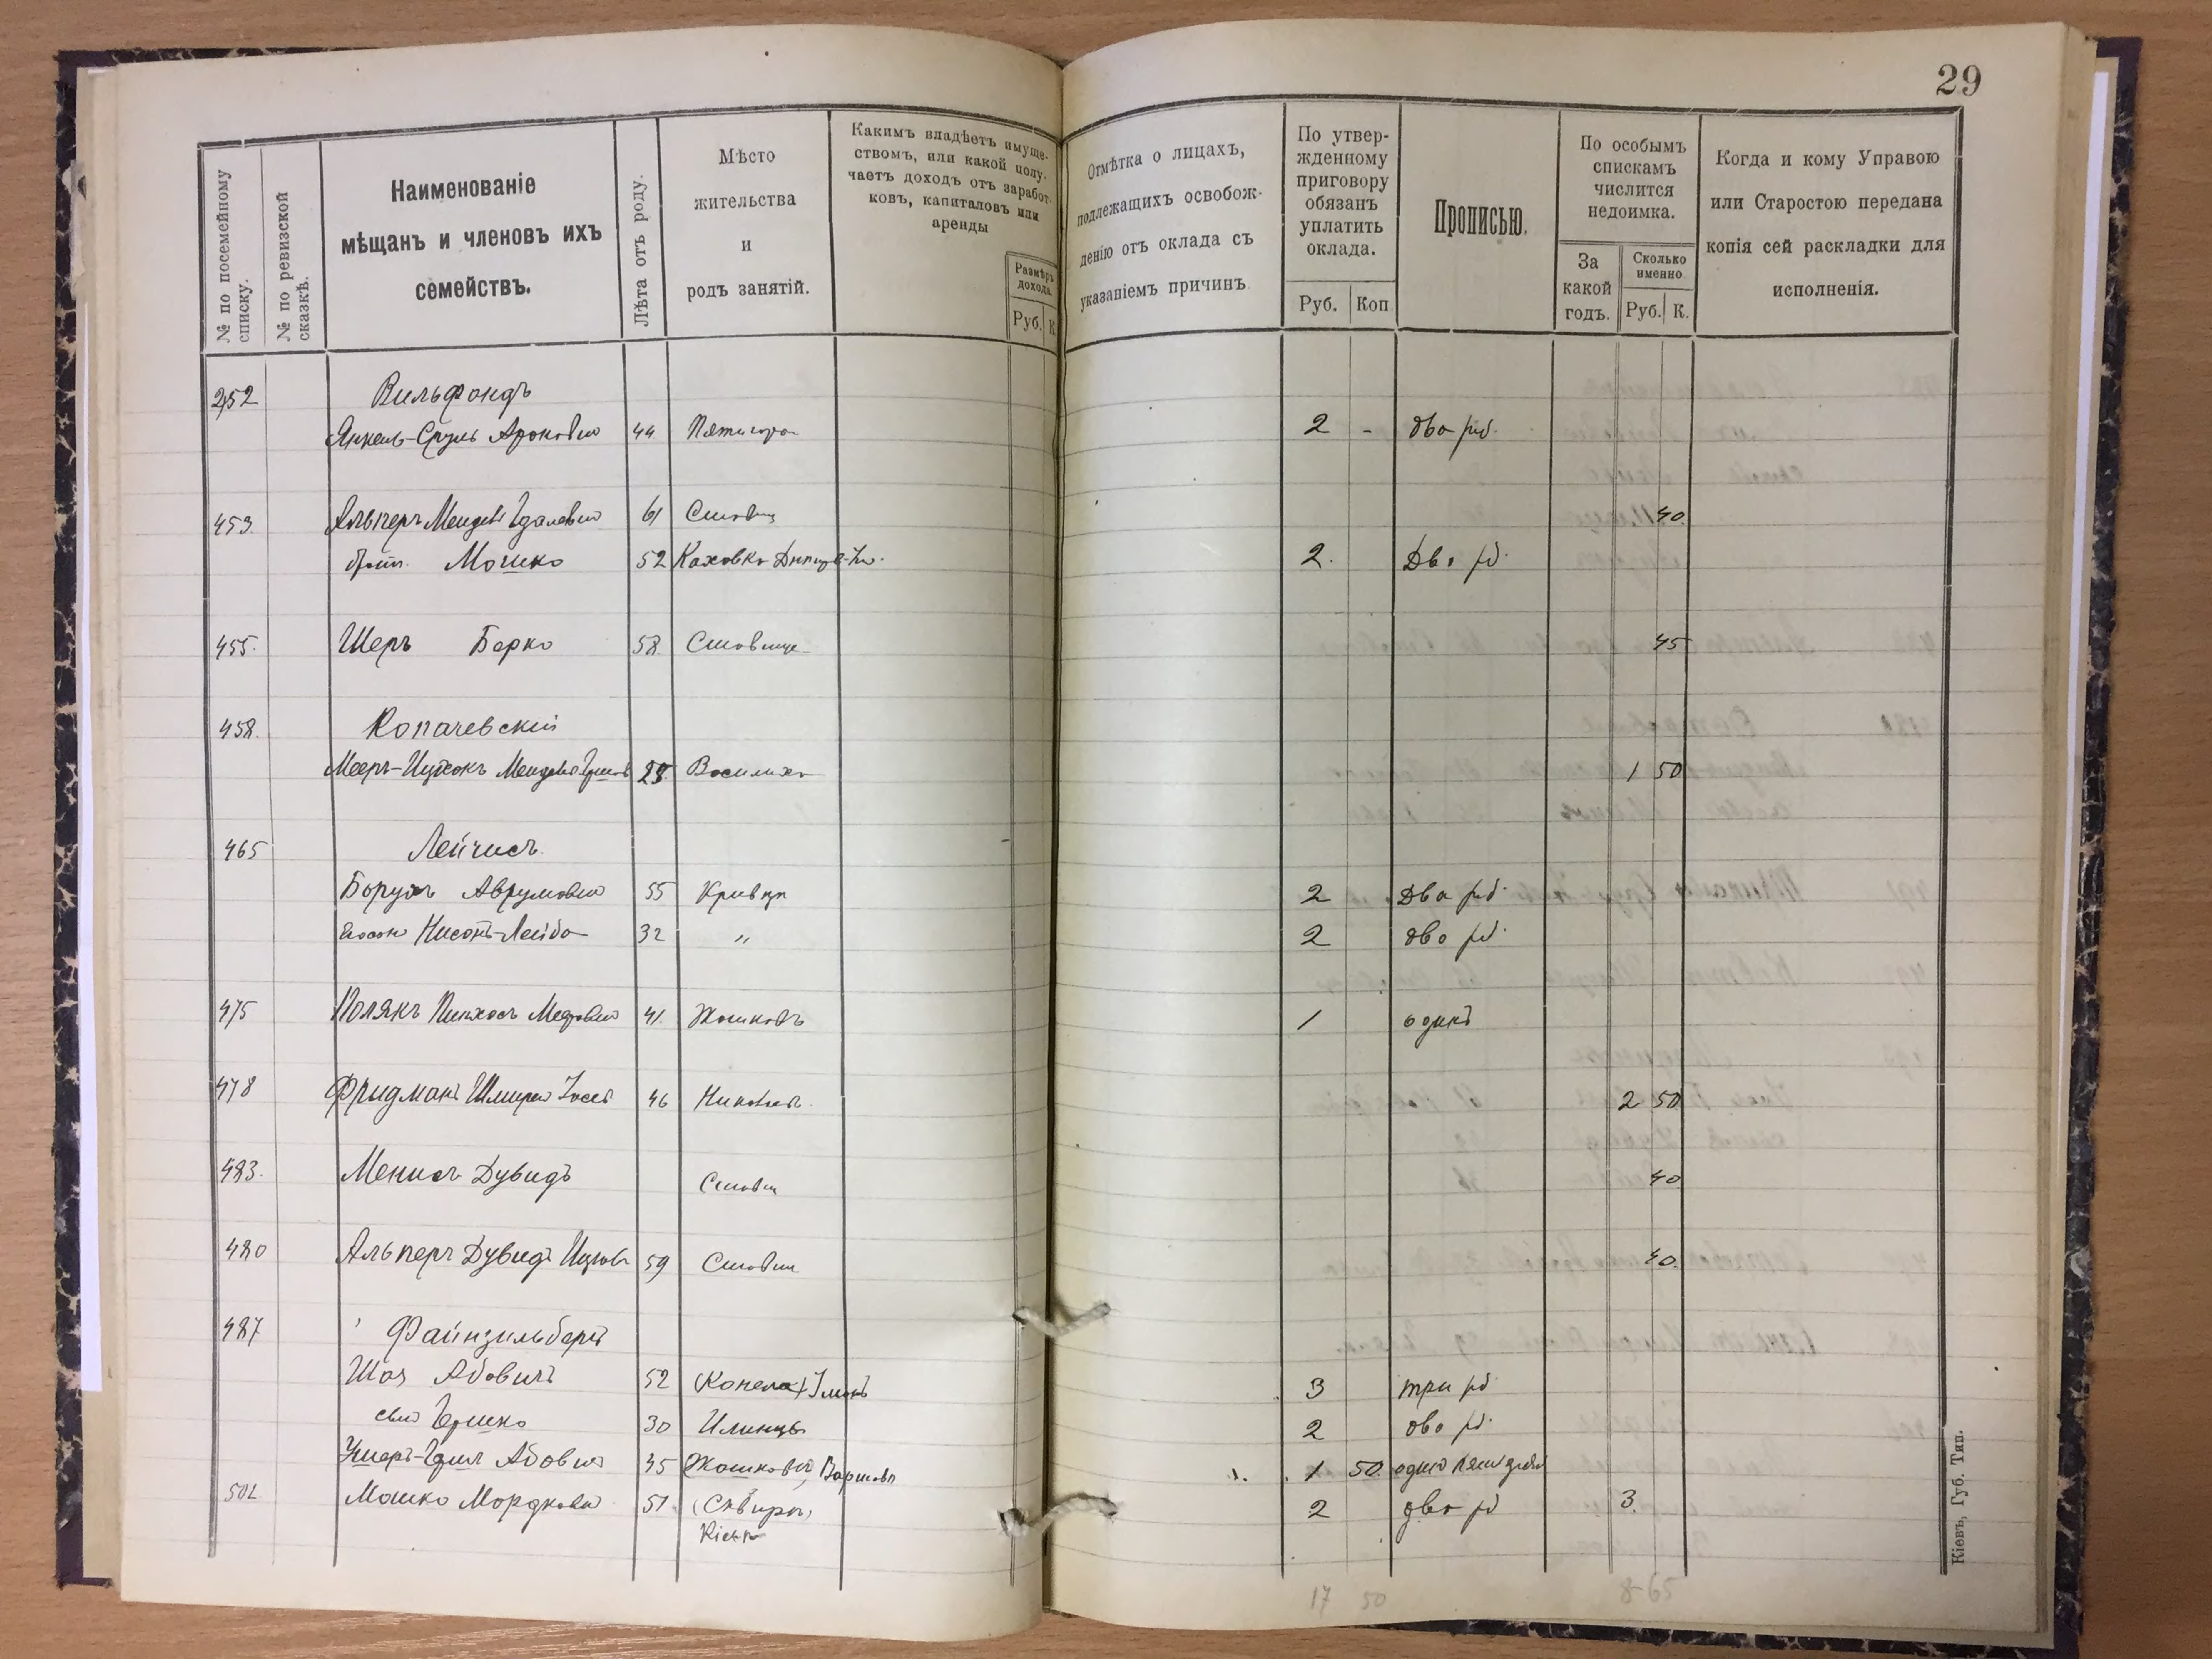 29
№ по посемейному списку.
№ по ревизской сказкѣ.
Наименованіе
мѣщанъ и членовъ ихъ
семействъ.
Лѣта отъ роду.
Мѣсто
жительства
и
родъ занятій.
Какимъ владѣетъ имуще-
ствомъ, или какой полу-
чаетъ доходъ отъ заработ-
ковъ, капиталовъ или
аренды
Размѣръ
дохода.
Руб. К.
Отмѣтка о лицахъ,
подлежащихъ освобож-
денію отъ оклада съ
указаніемъ причинъ
По утвер-
жденному
приговору
обязанъ
уплатить
оклада.
Руб. Коп
Прописью.
По особымъ
спискамъ
числится
недоимка.
За
какой
годъ.
Сколько
именно
Руб. К.
Когда и кому Управою
или Старостою передана
копія сей раскладки для
исполненія.
252 Вильфондъ
Янкель-Сруль Ароновъ 44 Пятигоры 2 - два руб.
453. Альперъ Мендель 61 Ставищ 40.
братъ. Мошко 52 Каховка 2. Два рб.
455. Шеръ Берко 58. Ставище 45
458. Копачевскій
Мееръ-Ицхокъ 28 Василиха 1 50
465 Лейчисъ
Борухъ Аврумовъ 55 Кривец 2 Два руб.
Нисонъ-Лейба 32 " 2 два рб.
475 Полякъ Пинхосъ 41. Жашковъ 1 одинъ
478 Фридманъ 46 2 50
483. Дувидъ Ставищ 40
480 Альперъ Дувидъ Ицков 59 Ставищ 40.
487 Файнзильбергъ
Шая Абовичъ 52 (Конела) 3 три рб
сынъ Гершко 30 Илинцы 2 два рб.
Ушеръ- Абовичъ 45 Жашковъ, Варшава 1 50. один
501 Мошко Мордковъ 51. (Сквира) 2 два рб 3.
Кіевъ
17 50 8-65
Кіевъ, Губ. Тип.